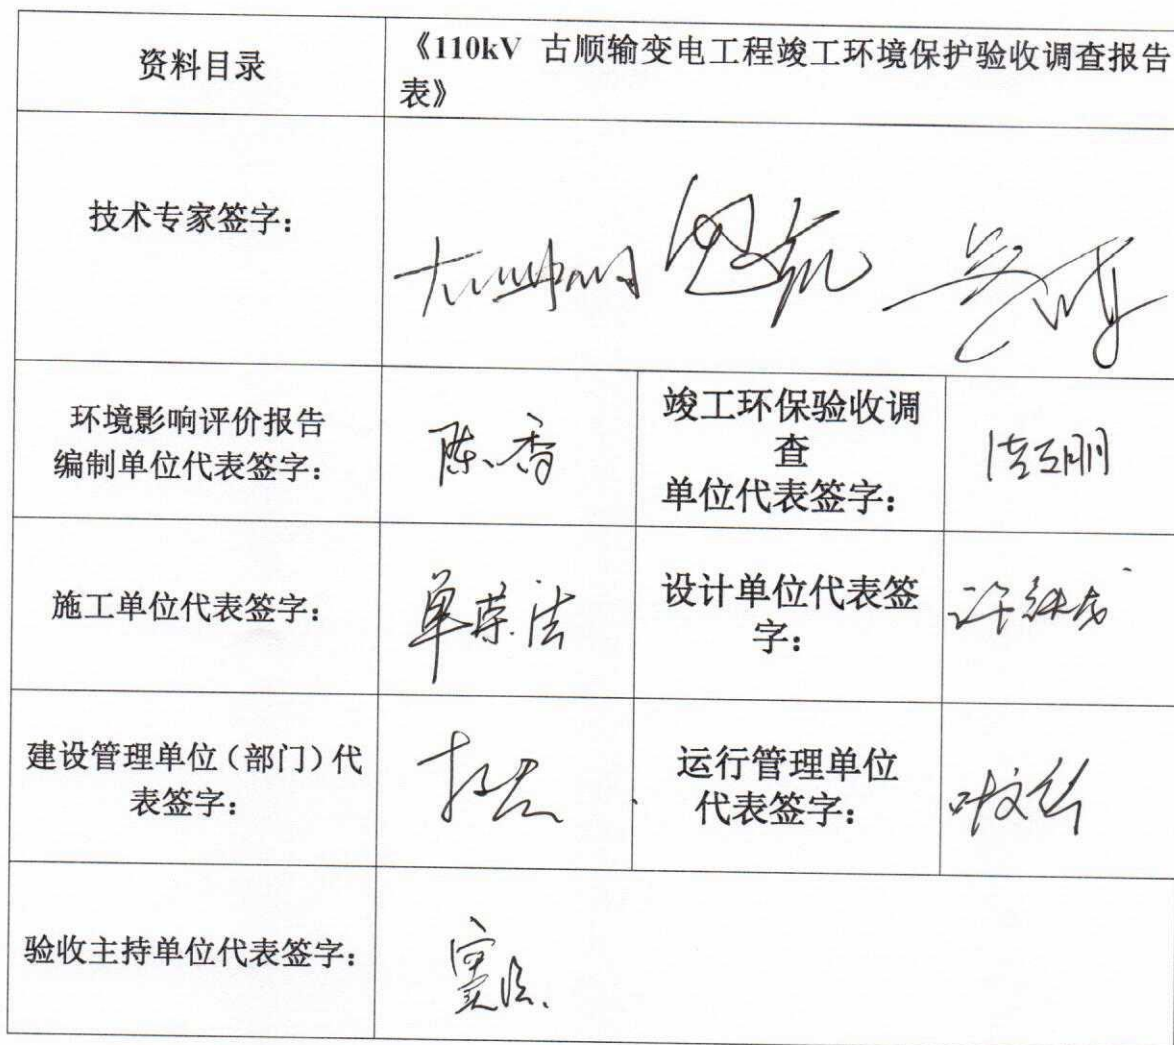 资料目录
《110kV 古顺输变电工程竣工环境保护验收调查报告
表》
技术专家签字：
环境影响评价报告
编制单位代表签字：
陈香
竣工环保验收调
查
单位代表签字：
施工单位代表签字：
单荣法
设计单位代表签
字：
建设管理单位（部门）代
表签字：
运行管理单位
代表签字：
验收主持单位代表签字：